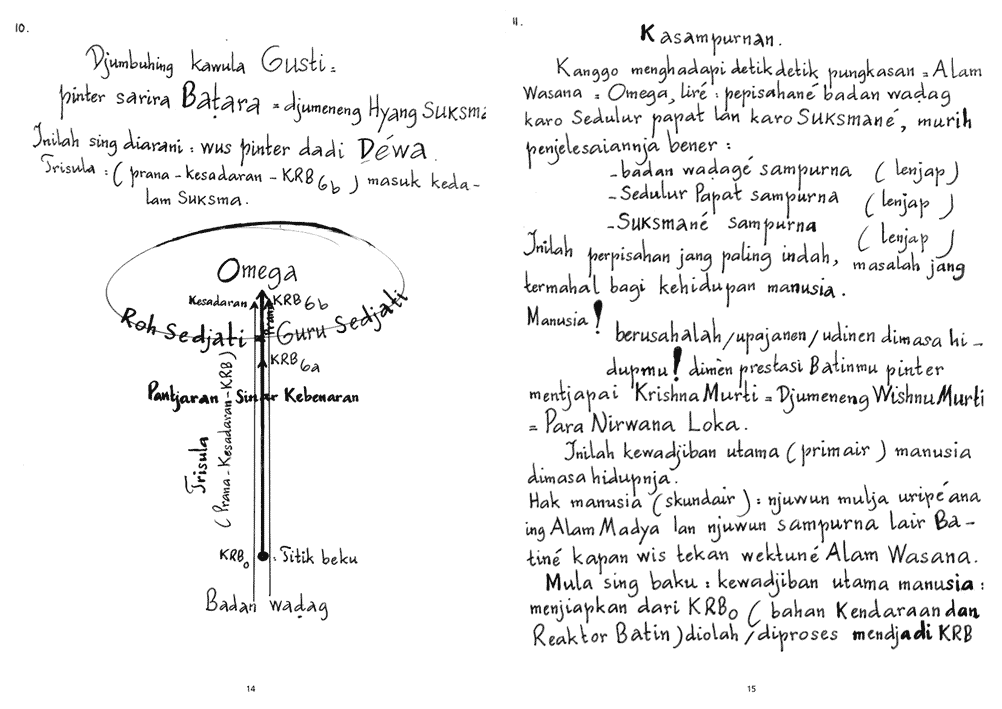 10.
Djumbuhing kawula Gusti =
pinter sarira Baṭara = djumeneng Hyang SUKSMA
Inilah sing diarani : wus pinter dadi Déwa.
Trisula : ( prana - kesadaran - KRB 6b ) masuk keda-
lam SUKSMA.
Omega
Kesadaran
KRB 6b
Prana
Roh Sedjati
Guru Sedjati
KRB 6a
Pantjaran Sinar Kebenaran
Trisula
( Prana - Kesadaran - KRB )
KRB 0
: Titik beku
Badan wadag
14
11.
Kasampurnan.
Kanggo menghadapi detik detik pungkasan = Alam
Wasana = Omega, liré : pepisahané badan waḍag
karo Sedulur papat lan karo SUKSMANÉ, murih
penjelesaiannja bener :
- badan waḍagé sampurna ( lenjap )
- Sedulur Papat sampurna ( lenjap )
- SUKSMANÉ sampurna ( lenjap )
Inilah perpisahan jang paling indah, masalah jang
termahal bagi kehidupan manusia.
Manusia ! berusahalah / upajanen / udinen dimasa hi -
dupmu ! dimèn prestasi Batinmu pinter
mentjapai Krishna Murti = Djumeneng Wishnu Murti
= Para Nirwana Loka.
Inilah kewadjiban utama ( primair ) manusia
dimasa hidupnja.
Hak manusia ( skundair ) : njuwun mulja uripé ana
ing Alam Madya lan njuwun sampurna lair Ba -
tiné kapan wis tekan wektuné Alam Wasana.
Mula sing baku : kewadjiban utama manusia :
menjiapkan dari KRB0 ( bahan Kendaraan dan
Reaktor Batin ) diolah / diproses mendjadi KRB
15